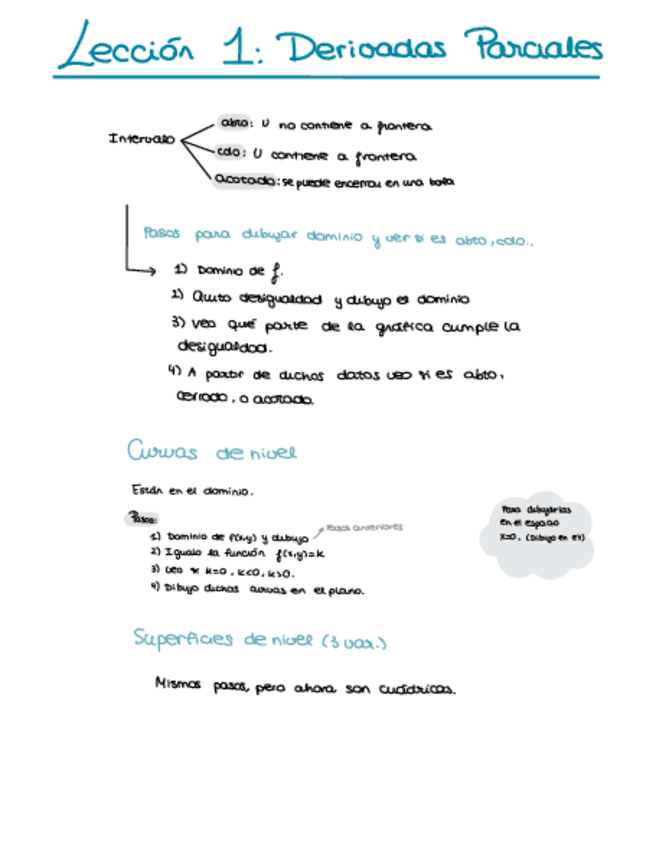 Lección 1: Derivadas Parciales
Intervalo
abto: U no contiene a frontera
cdo: U contiene a frontera
acotado: se puede encerrar en una bola
Pasos para dibujar dominio y ver si es abto, cdo..
1) Dominio de f.
2) Quito desigualdad y dibujo el dominio
3) veo qué parte de la gráfica cumple la
desigualdad.
4) A partir de dichos datos veo si es abto,
cerrado, o acotado.
Curvas de nivel
Están en el dominio.
Pasos:
1) Dominio de f(x,y) y dibujo
Pasos anteriores
2) Igualo la función f(x,y)=k
3) veo si k=0, k<0, k>0.
4) Dibujo dichas curvas en el plano.
Para dibujarlas
en el espacio
x=0. (Dibujo en
Superficies de nivel (3 var.)
Mismos pasos, pero ahora son cuádricas.